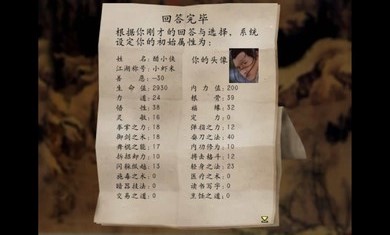 回答完毕
根据你刚才的回答与选择，系统
设定你的初始属性为：
姓 名：醋小侠
江湖称号：小虾米
善 恶：-30
生命值：2930
力 道：24
悟 性：38
灵 敏：16
拳掌之力：18
御剑之术：18
奔腿之能：17
拆招卸力：10
闪躲纵跃：13
施毒之术：0
暗器技法：0
交易之道：0
你的头像
内力值：200
根 骨：39
福 缘：32
定 力：0
弹指之力：12
舞刀之法：40
内功修为：10
搏击格斗：12
轻身之法：23
医疗之术：0
读书写字：0
烹饪之道：0